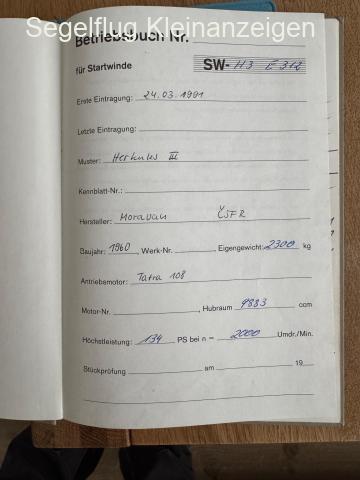 Segelflug Kleinanzeigen
Betriebsbuch Nr.
für Startwinde SW- H3 E 312
Erste Eintragung: 24.03.1991
Letzte Eintragung:
Muster: Herkules III
Kennblatt-Nr.:
Hersteller: Moravan ČSFR
Baujahr: 1960, Werk-Nr. Eigengewicht: 2300 kg
Antriebsmotor: Tatra 108
Motor-Nr. , Hubraum 9883 ccm
Höchstleistung: 134 PS bei n = 2000 Umdr./Min.
Stückprüfung am 19